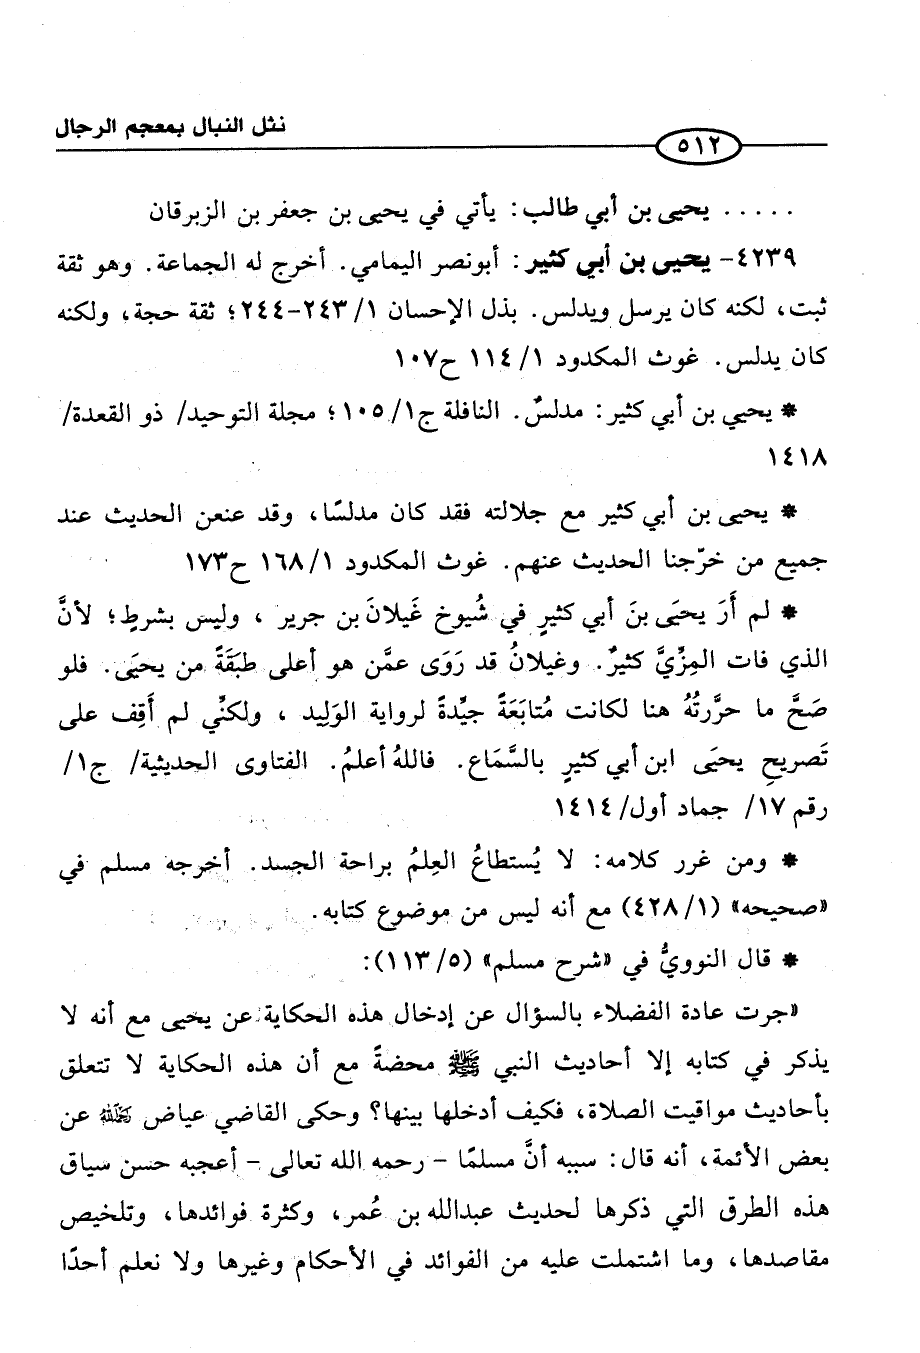 نثل النبال بمعجم الرجال
٥١٢
..... يحيى بن أبي طالب: يأتي في يحيى بن جعفر بن الزبرقان
٤٢٣٩- يحيى بن أبي كثير: أبونصر اليمامي. أخرج له الجماعة. وهو ثقة
ثبت، لكنه كان يرسل ويدلس. بذل الإحسان ١/ ٢٤٣-٢٤٤؛ ثقة حجة، ولكنه
كان يدلس. غوث المكدود ١/ ١١٤ ح١٠٧
* يحيي بن أبي كثير: مدلسٌ. النافلة ج١/ ١٠٥؛ مجلة التوحيد/ ذو القعدة/
١٤١٨
* يحيى بن أبي كثير مع جلالته فقد كان مدلسًا، وقد عنعن الحديث عند
جميع من خرّجنا الحديث عنهم. غوث المكدود ١/ ١٦٨ ح١٧٣
* لم أَرَ يحيَى بنَ أبي كثيرٍ في شُيوخ غَيلانَ بن جرير ، وليس بشرطٍ؛ لأنَّ
الذي فات المِزِّيَّ كثيرٌ. وغيلانُ قد رَوَى عمَّن هو أعلى طبَقَةً من يحيَى. فلو
صَحَّ ما حرَّرتُهُ هنا لكانت مُتابَعَةً جيِّدةً لرواية الوَلِيد ، ولكنِّي لم أَقِف على
تَصريحِ يحيَى ابن أبي كثيرٍ بالسَّمَاع. فاللهُ أعلمُ. الفتاوى الحديثية/ ج١/
رقم ١٧/ جماد أول/ ١٤١٤
* ومن غرر كلامه: لا يُستطاعُ العِلمُ براحة الجسد. أخرجه مسلم في
«صحيحه» (١/ ٤٢٨) مع أنه ليس من موضوع كتابه.
* قال النوويُّ في «شرح مسلم» (٥/ ١١٣):
«جرت عادة الفضلاء بالسؤال عن إدخال هذه الحكاية عن يحيى مع أنه لا
يذكر في كتابه إلا أحاديث النبي ﷺ محضةً مع أن هذه الحكاية لا تتعلق
بأحاديث مواقيت الصلاة، فكيف أدخلها بينها؟ وحكى القاضي عياض رَحِمَهُ اللهُ عن
بعض الأئمة، أنه قال: سببه أنَّ مسلمًا - رحمه الله تعالى - أعجبه حسن سياق
هذه الطرق التي ذكرها لحديث عبدالله بن عُمر، وكثرة فوائدها، وتلخيص
مقاصدها، وما اشتملت عليه من الفوائد في الأحكام وغيرها ولا نعلم أحدًا